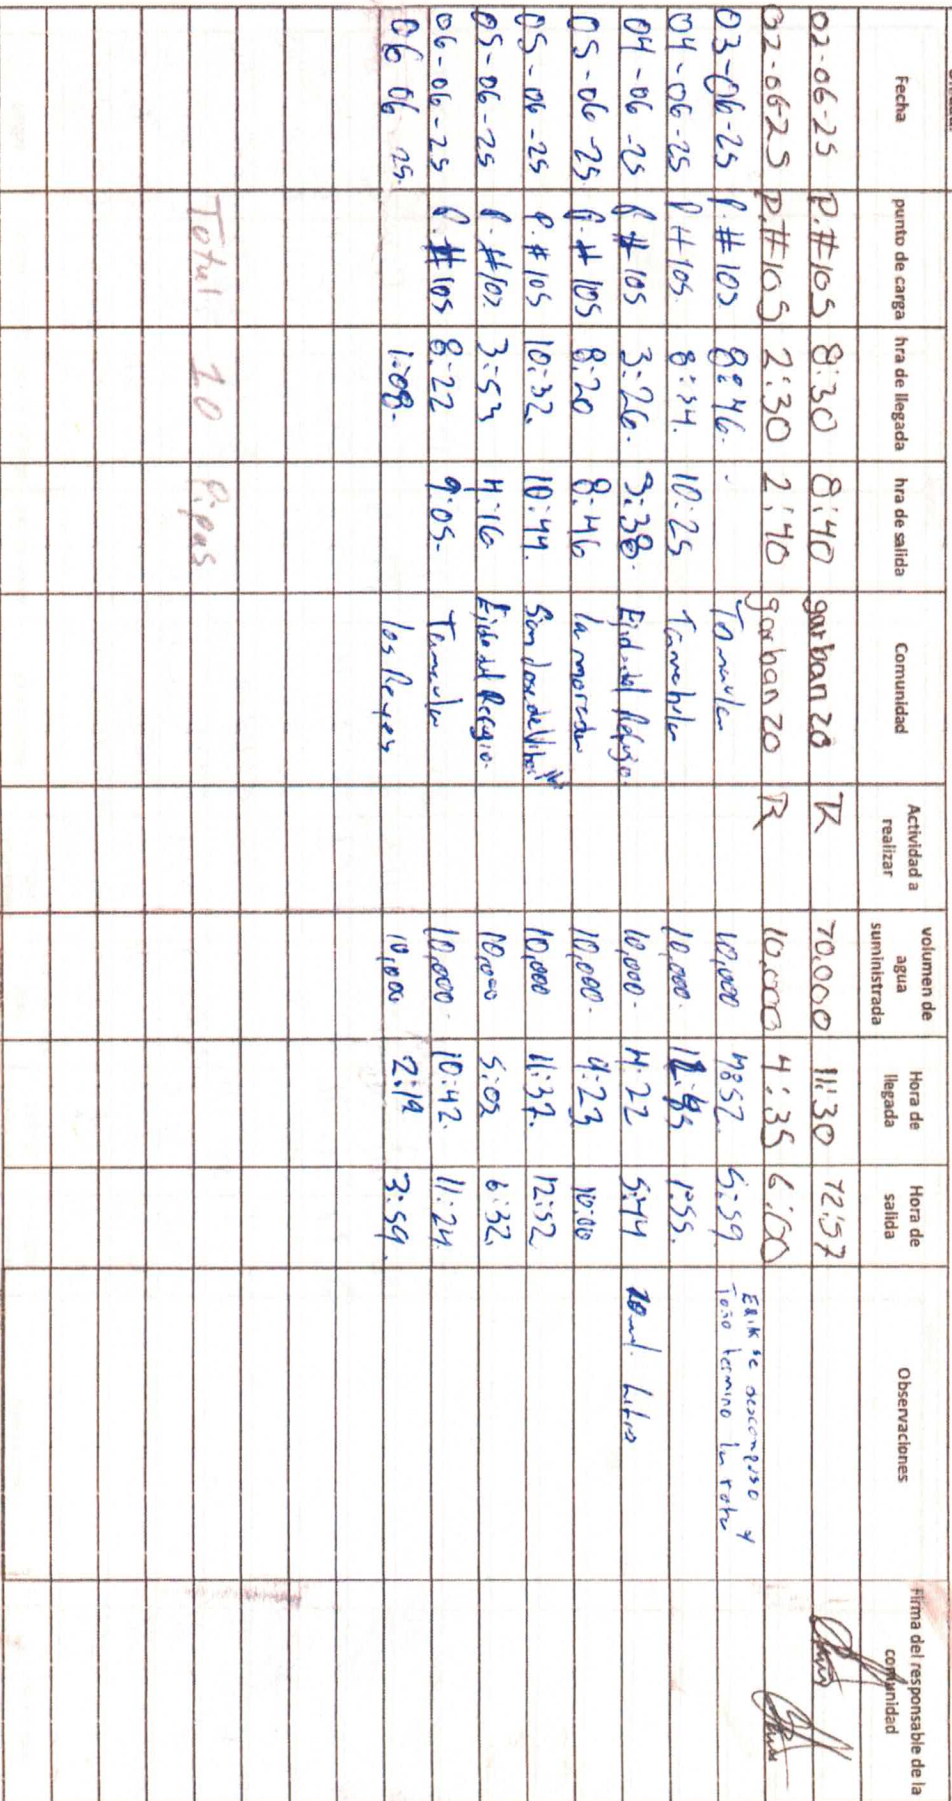 Fecha punto de carga hra de llegada hra de salida Comunidad Actividad a realizar volumen de agua suministrada Hora de llegada Hora de salida Observaciones Firma del responsable de la comunidad
02-06-25 P.#105 8:30 8:40 garbanzo R 10.000 11:30 12:57
02-06-25 P.#105 2:30 2:40 garbanzo R 10.000 4:35 6:00
03-06-25 P.#105 8:46. 10,000 4:52. 5:59. Erik se descompuso y
Toño termino la ruta
04-06-25 P#105. 8:34. 10:25 10,000. 1:55.
04-06-25 P.#105 3:26. 3:38. Ejido del Refugio. 10,000. 4:22 5:44
05-06-25. P.#105 8:20 8:46 la morada 10,000. 9:23 10:00
05-06-25 P.#105 10:32. 10:44. San Jose de 10,000 11:37. 12:52
05-06-25 P.#105. 3:53 4:16 Ejido del Refugio. 10,000 5:05 6:32.
06-06-25 P.#105 8:22 9:05. Tamaula 10,000. 10:42. 11:24.
06 06 25. 1:08. los Reyes 10,000 2:19 3:59.
Total 10 Pipas